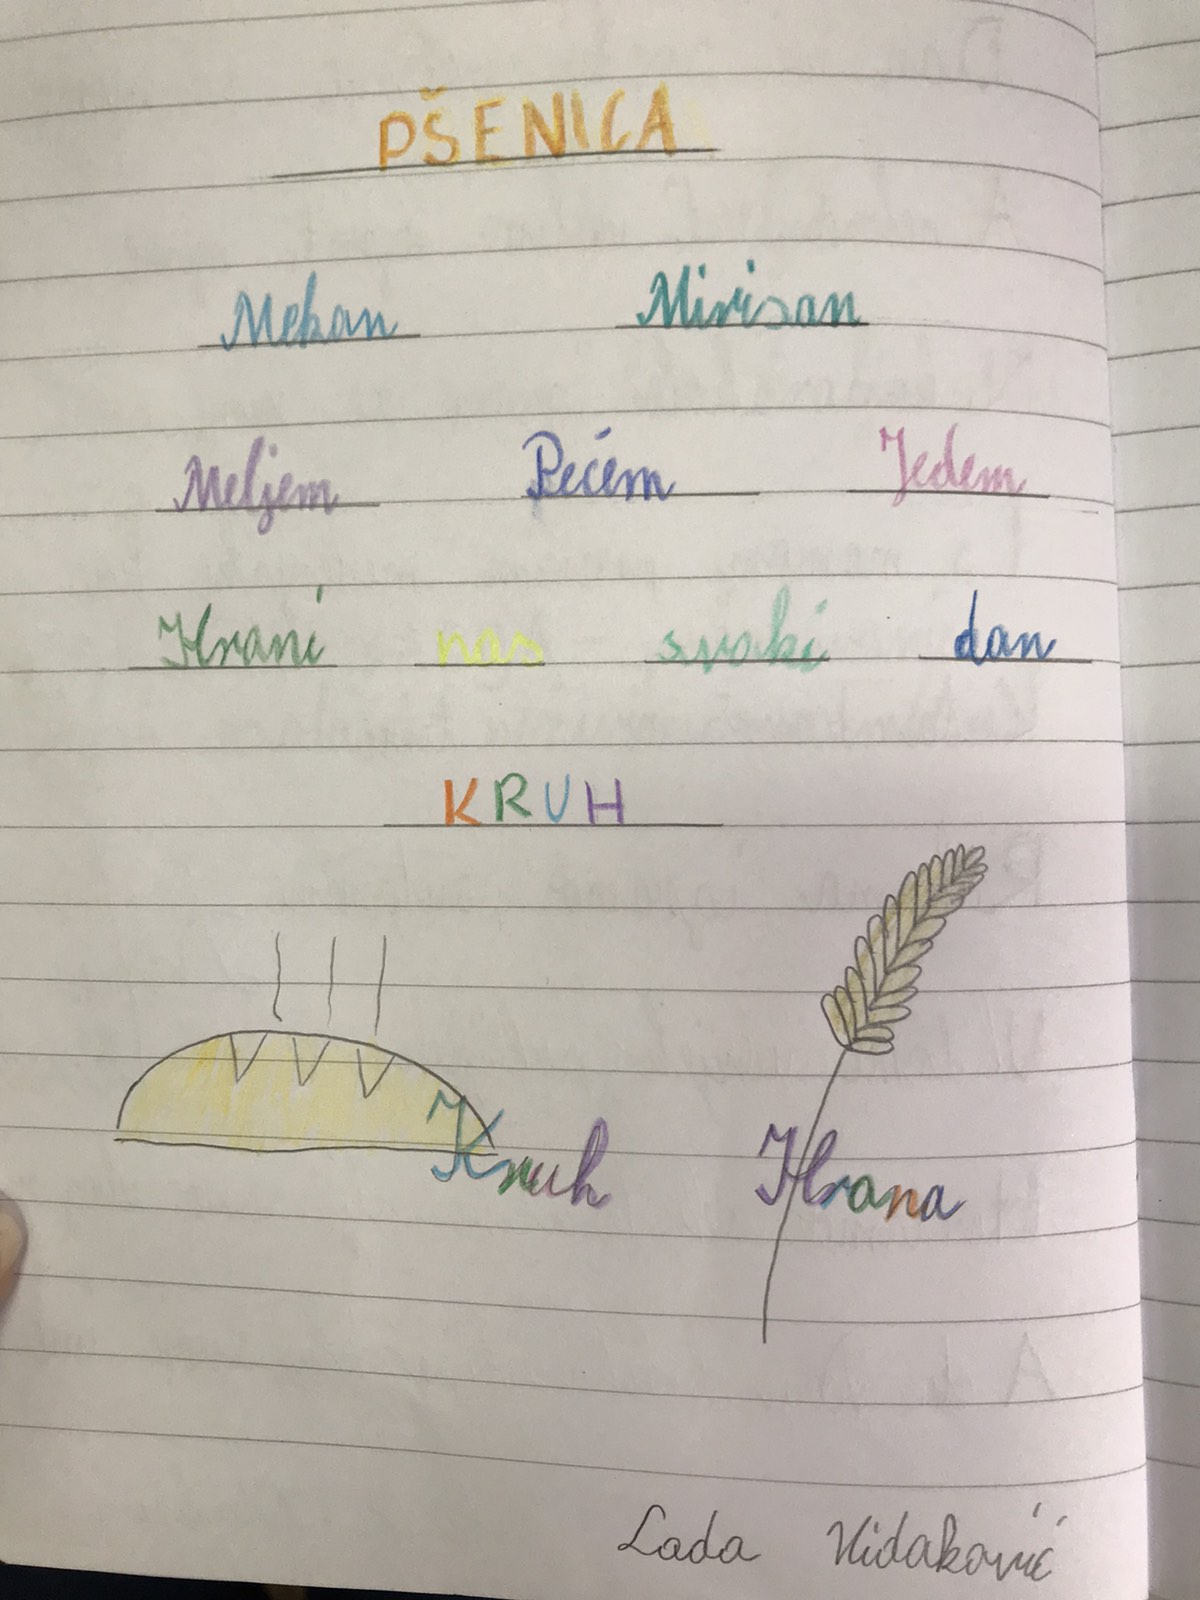 PŠENICA
Mekan Mirisan
Meljem Pećem Jedem
Hrani nas svaki dan
KRUH
Kruh Hrana
Lada Vidaković